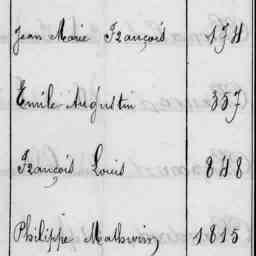 Jean Marie François 178
Emile Augustin 357
François Louis 848
Philippe Mathurin 1815